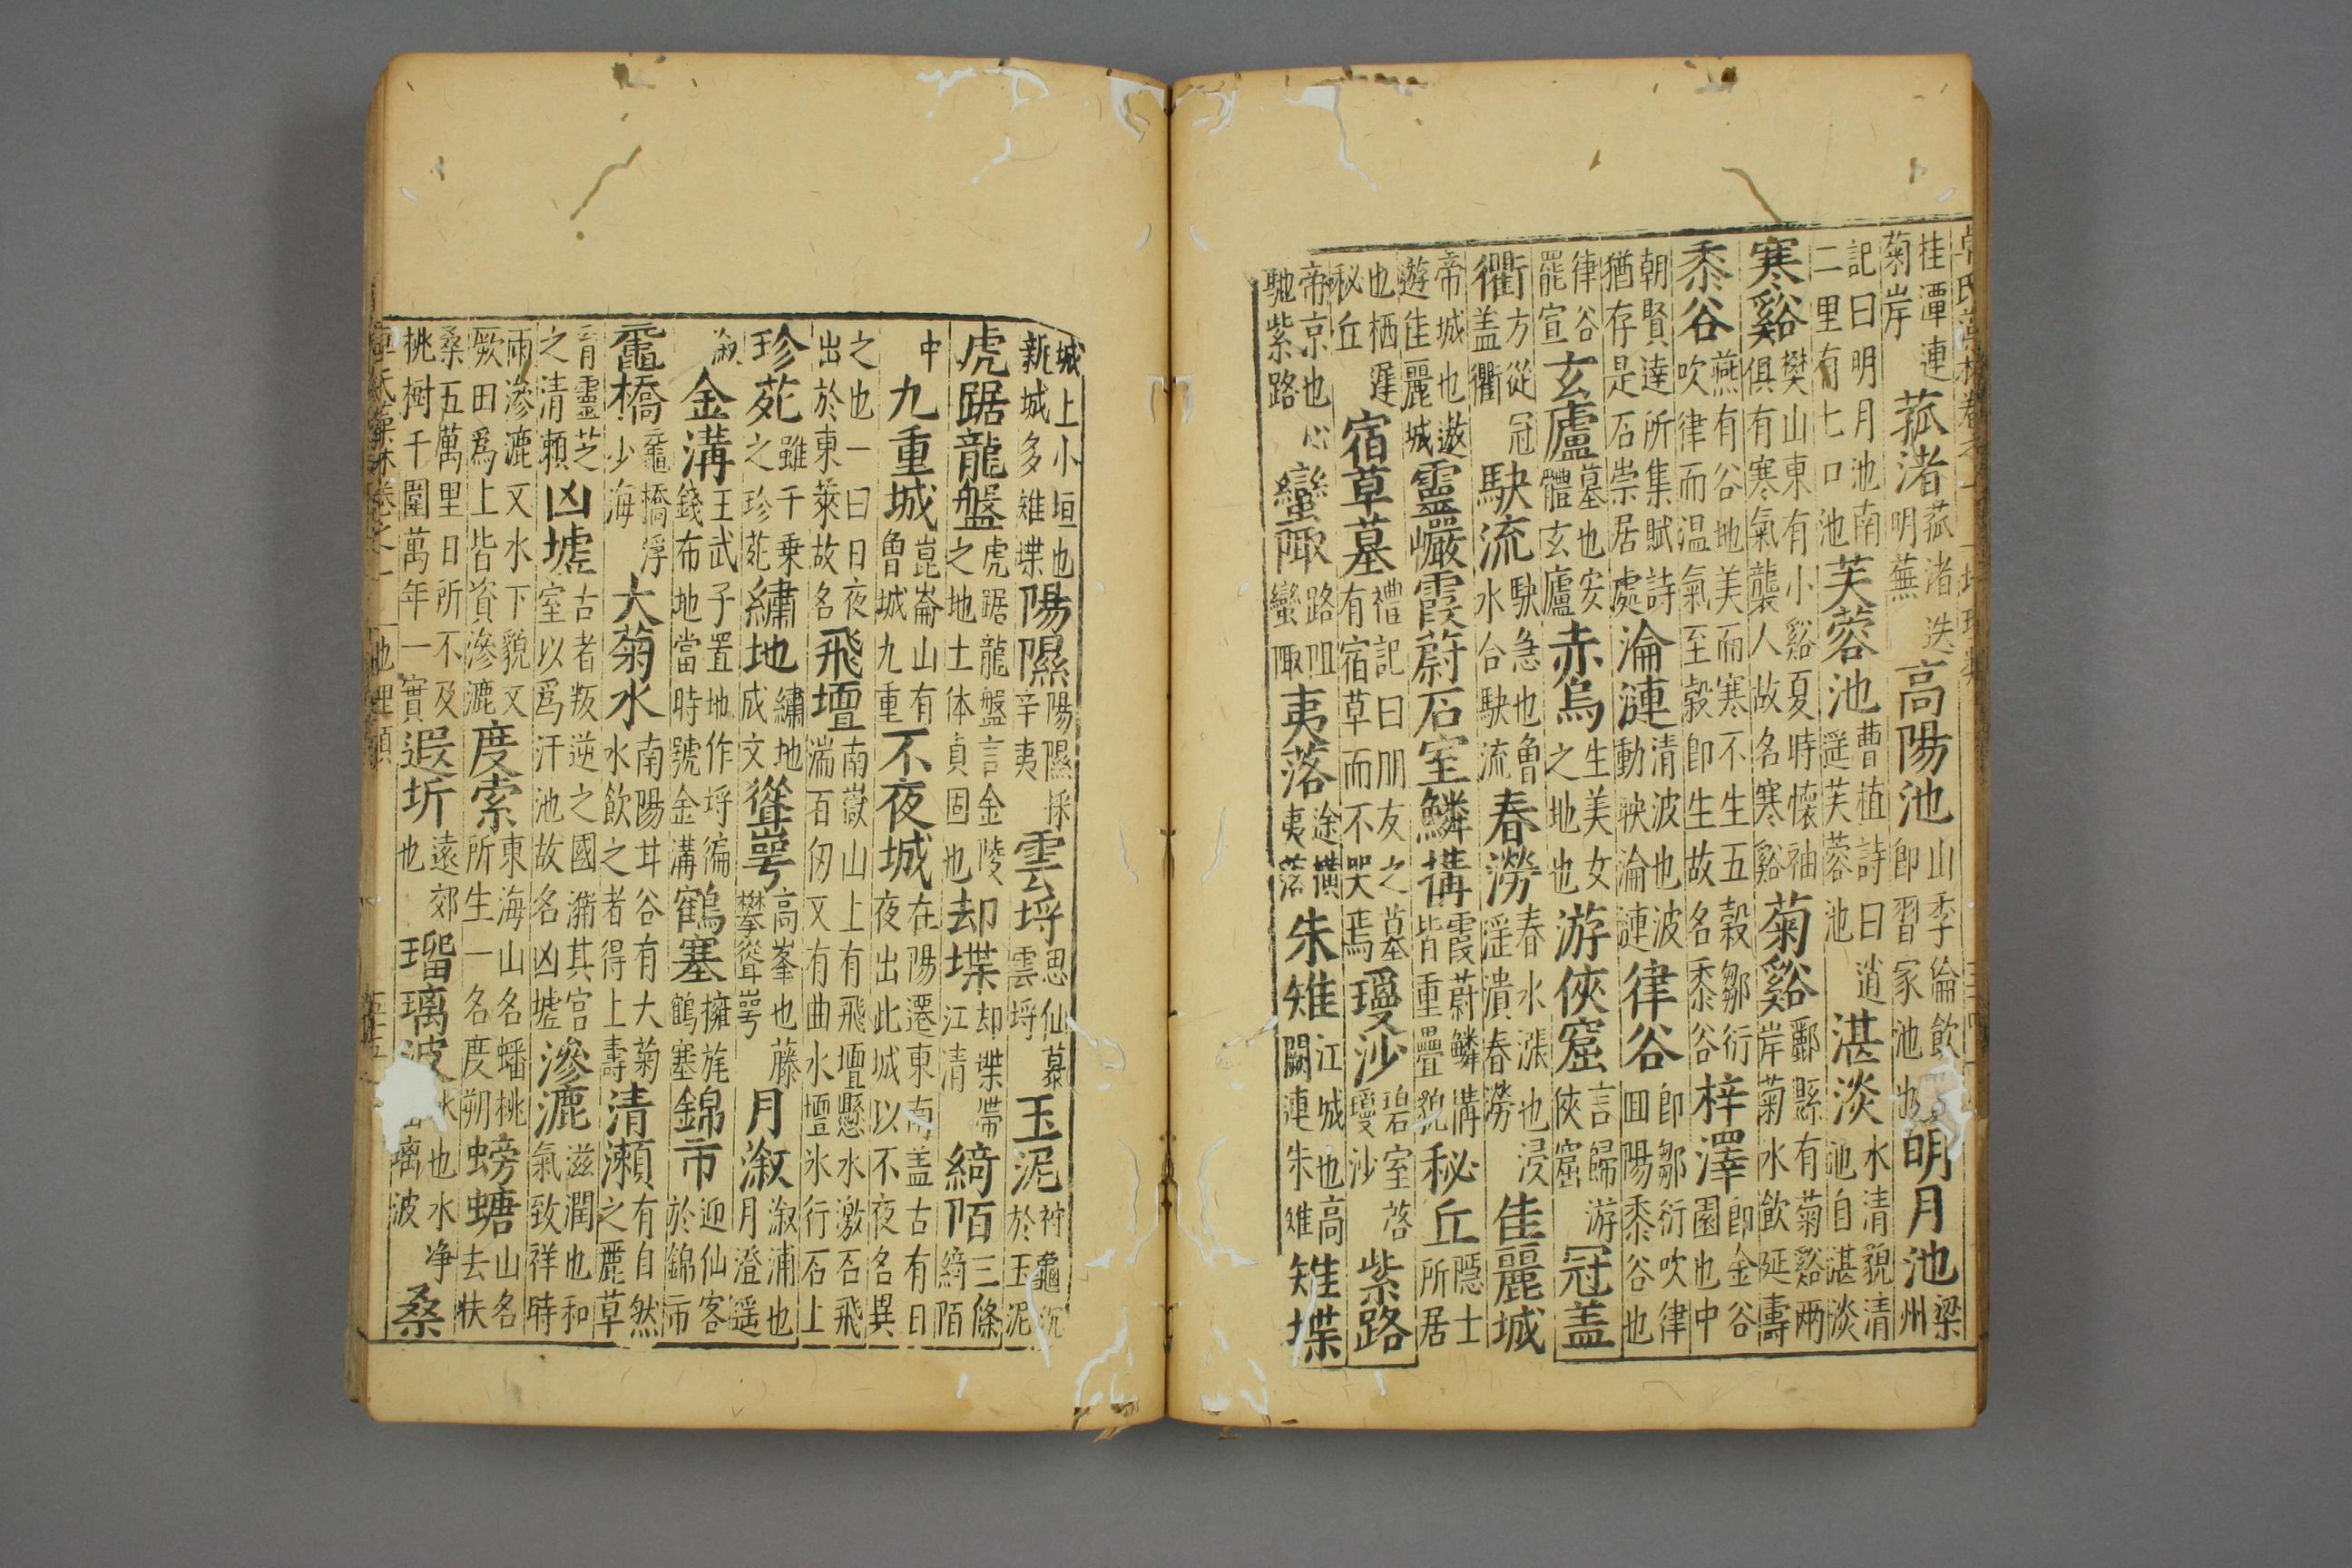 桂潭連菊岸 菰渚 菰渚迭明蕪 高陽池 山季倫飲即習家池也 明月池 梁州
記曰明月池南二里有七口池 芙蓉池 曹植詩曰逍遥芙蓉池 湛淡 水清貌清池自湛淡
寒谿 樊山東有小谿夏時懷袖俱有寒氣襲人故名寒谿 菊谿 酈縣有菊谿兩岸菊水飲延壽
黍谷 燕有谷地美而寒不生五穀鄒衍吹律而温氣至穀即生故名黍谷 梓澤 即金谷園也中
朝賢達所集賦詩猶存是石崇居處 淪漣 清波也波動軮淪漣 律谷 即鄒衍吹律回陽黍谷也
律谷罷宣 玄廬 墓也安體玄廬 赤烏 生美女之地也 游俠窟 言歸游俠窟 冠盖
衢 方從冠盖衢 駃流 駃急也魯水合駃流 春澇 春水漲也浸淫潰春澇 佳麗城
帝城也遨遊佳麗城 靈巘霞蔚石室鱗構 霞蔚鱗構皆重疊貌 秘丘 隱士所居
也栖遲秘丘 宿草墓 禮記曰朋友之墓有宿草而不哭焉 瓊沙 碧室茖瓊沙 紫路
帝京也心馳紫路 蠻陬 路阻蠻陬 夷落 途横夷落 朱雉 江城也高闕連朱雉 雉堞
城上小垣也新城多雉堞 陽隰 陽隰採辛夷 雲埒 思仙慕雲埒 玉泥 符龜沉於玉泥
虎踞龍盤 虎踞龍盤言金陵之地土体貞固也 却堞 却堞帶江清 綺陌 三條綺陌
中 九重城 崑崙山有魯城九重 不夜城 在陽遷東南盖古有日夜出此城以不夜名異
之也一曰日夜出於東萊故名 飛壇 南嶽山上有飛壇懸水激石飛湍百仞又有曲水壇氷行石上
珍苑 雖千乗之珍苑 繡地 繡地成文 嵸崿 高峯也藤攀嵸崿 月溆 溆浦也月澄遥
溆 金溝 王武子置地作埒徧錢布地當時號金溝 鶴塞 擁旄鶴塞 錦市 迎仙客於錦市
黿橋 黿橋浮少海 大菊水 南陽井谷有大菊水飲之者得上壽 清瀬 有自然之麗草
育靈芝之清瀬 凶墟 古者叛逆之國瀦其宮室以爲汙池故名凶墟 滲漉 滋潤也和氣致祥時
雨滲漉又水下貌文厥田爲上皆資滲漉 度索 東海山名蟠桃所生一名度朔 螃螗 山名去扶
桑五萬里日所不及桃樹千圍萬年一實 遐圻 遠郊也 瑠璃波 氷也水净璃波 桑